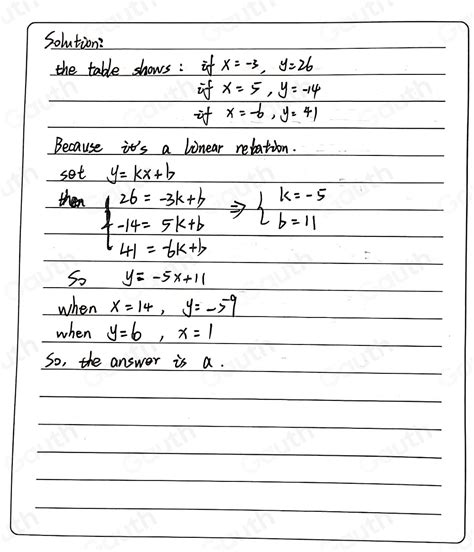 Solution:
the table shows: if x = -3, y=26
if x = 5, y = -14
if x = -6, y = 41
Because it's a linear relation.
set y = kx+b
then { 26 = -3k+b ⇒ { k = -5
-14 = 5k+b b = 11
41 = -6k+b
So y = -5x+11
when x = 14, y = -59
when y = 6, x = 1
So, the answer is a.